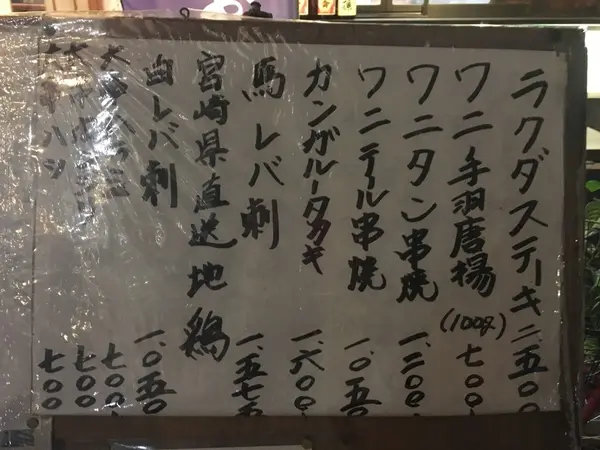 ラクダステーキ 二、五〇〇
ワニ手羽唐揚(100g) 七〇〇
ワニタン串焼 一、二〇〇
ワニテール串焼 一、〇五〇
カンガルータタキ 一、六〇〇
馬レバ刺 一、五七五
宮崎県直送地鶏
白レバ刺 一、〇五〇
七〇〇
七〇〇
七〇〇